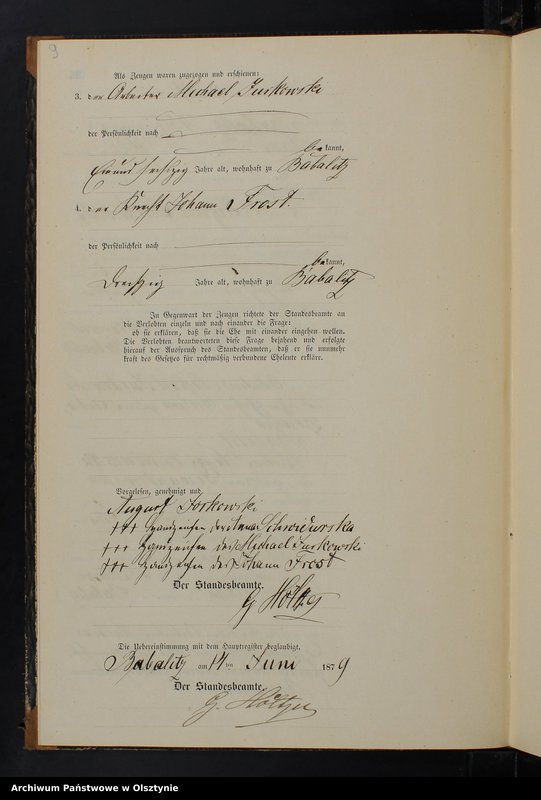 9
Als Zeugen waren zugezogen und erschienen:
3. der Arbeiter Michael Jurkowski
der Persönlichkeit nach
be kannt,
Ein und sechszig Jahre alt, wohnhaft zu Babalitz
4. der Knecht Johann Frost.
der Persönlichkeit nach
be kannt,
Dreißig Jahre alt, wohnhaft zu Babalitz
In Gegenwart der Zeugen richtete der Standesbeamte an
die Verlobten einzeln und nach einander die Frage:
ob sie erklären, daß sie die Ehe mit einander eingehen wollen.
Die Verlobten beantworteten diese Frage bejahend und erfolgte
hierauf der Ausspruch des Standesbeamten, daß er sie nunmehr
kraft des Gesetzes für rechtmäßig verbundene Eheleute erkläre.
Vorgelesen, genehmigt und
August
+++ Handzeichen der Anna
+++ Handzeichen des Michael Jurkowski
+++ Handzeichen des Johann Frost
Der Standesbeamte.
G Höltzer
Die Uebereinstimmung mit dem Hauptregister beglaubigt.
Babalitz am 14 ten Juni 1879
Der Standesbeamte.
G. Höltzer
Archiwum Państwowe w Olsztynie